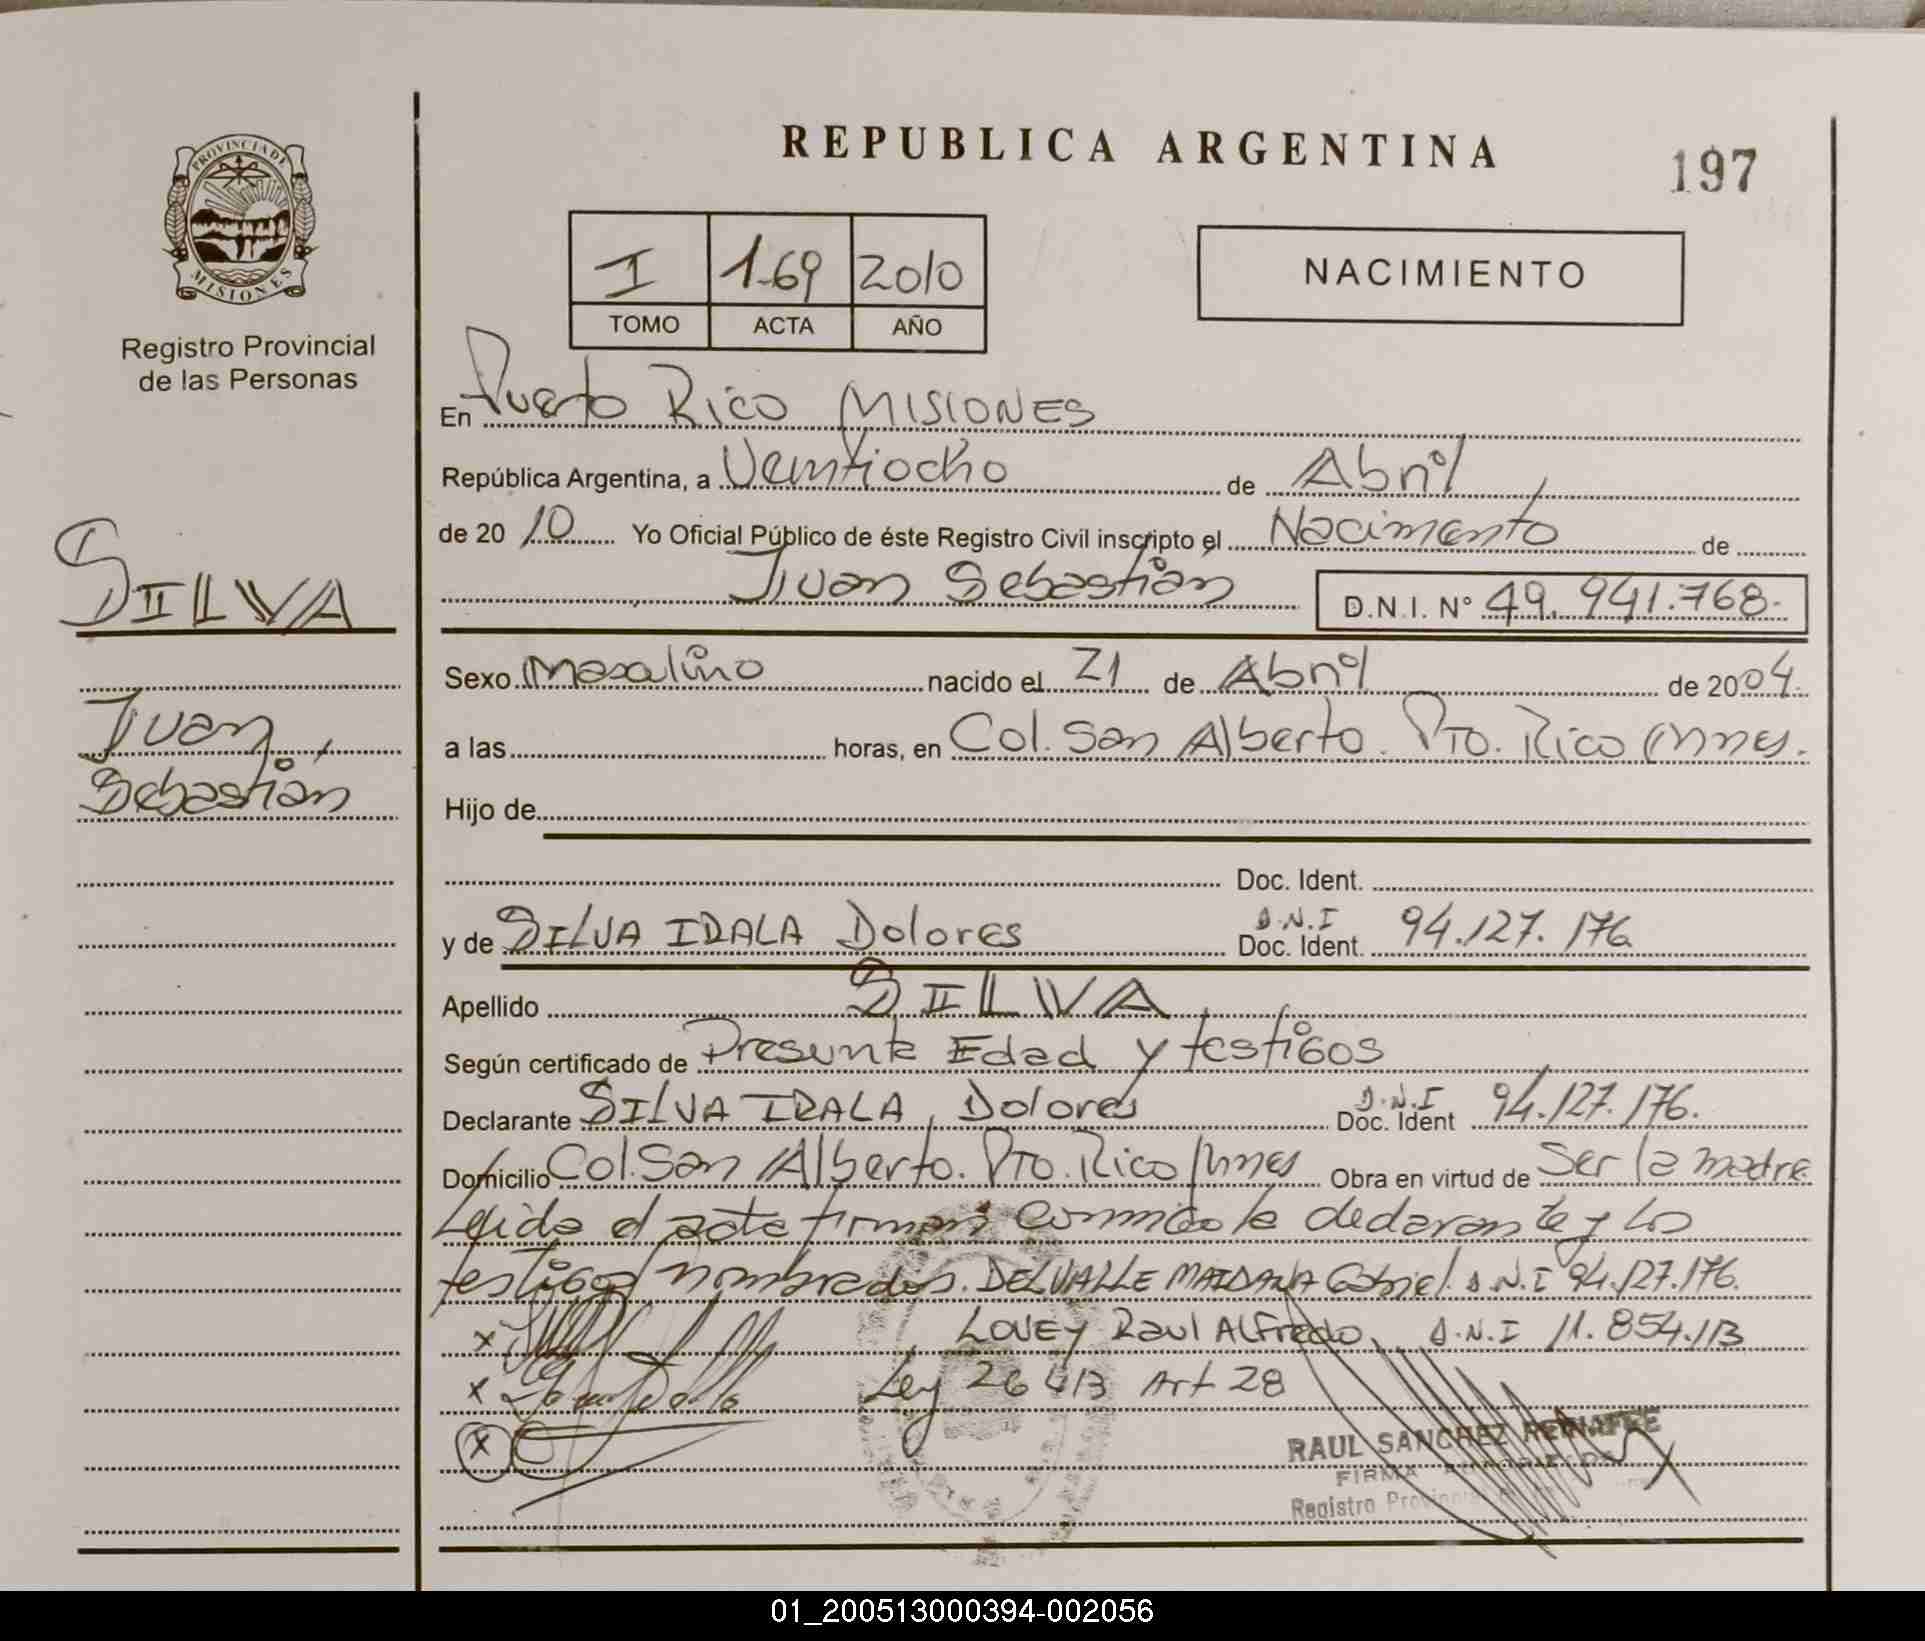 REPUBLICA ARGENTINA
197
PROVINCIA DE
MISIONES
Registro Provincial
de las Personas
I 169 2010
TOMO ACTA AÑO
NACIMIENTO
En Puerto Rico MISIONES
República Argentina, a Veintiocho de Abril
de 20 10 Yo Oficial Público de éste Registro Civil inscripto el Nacimiento de
Juan Sebastián D.N.I. N° 49.941.768-
SILVA
Juan,
Sebastián
Sexo Masculino nacido el 21 de Abril de 2004
a las horas, en Col. San Alberto. Pto. Rico Mnes.
Hijo de
Doc. Ident.
y de SILVA IRALA Dolores D.N.I Doc. Ident. 94.127.176
Apellido SILVA
Según certificado de Presunta Edad y testigos
Declarante SILVA IRALA, Dolores D.N.I Doc. Ident 94.127.176.
Domicilio Col. San Alberto. Pto. Rico Mnes Obra en virtud de Ser la madre
Leida el acta firman conmigo la declarante y los
testigos nombrados. DELVALLE MAIDANA Gabriel. D.N.I 94.127.176.
x LOVEY Raul Alfredo, D.N.I 11.854.113
x Ley 26413 Art 28
x
RAUL SANCHEZ
FIRMA
Registro Provincial
01_200513000394-002056